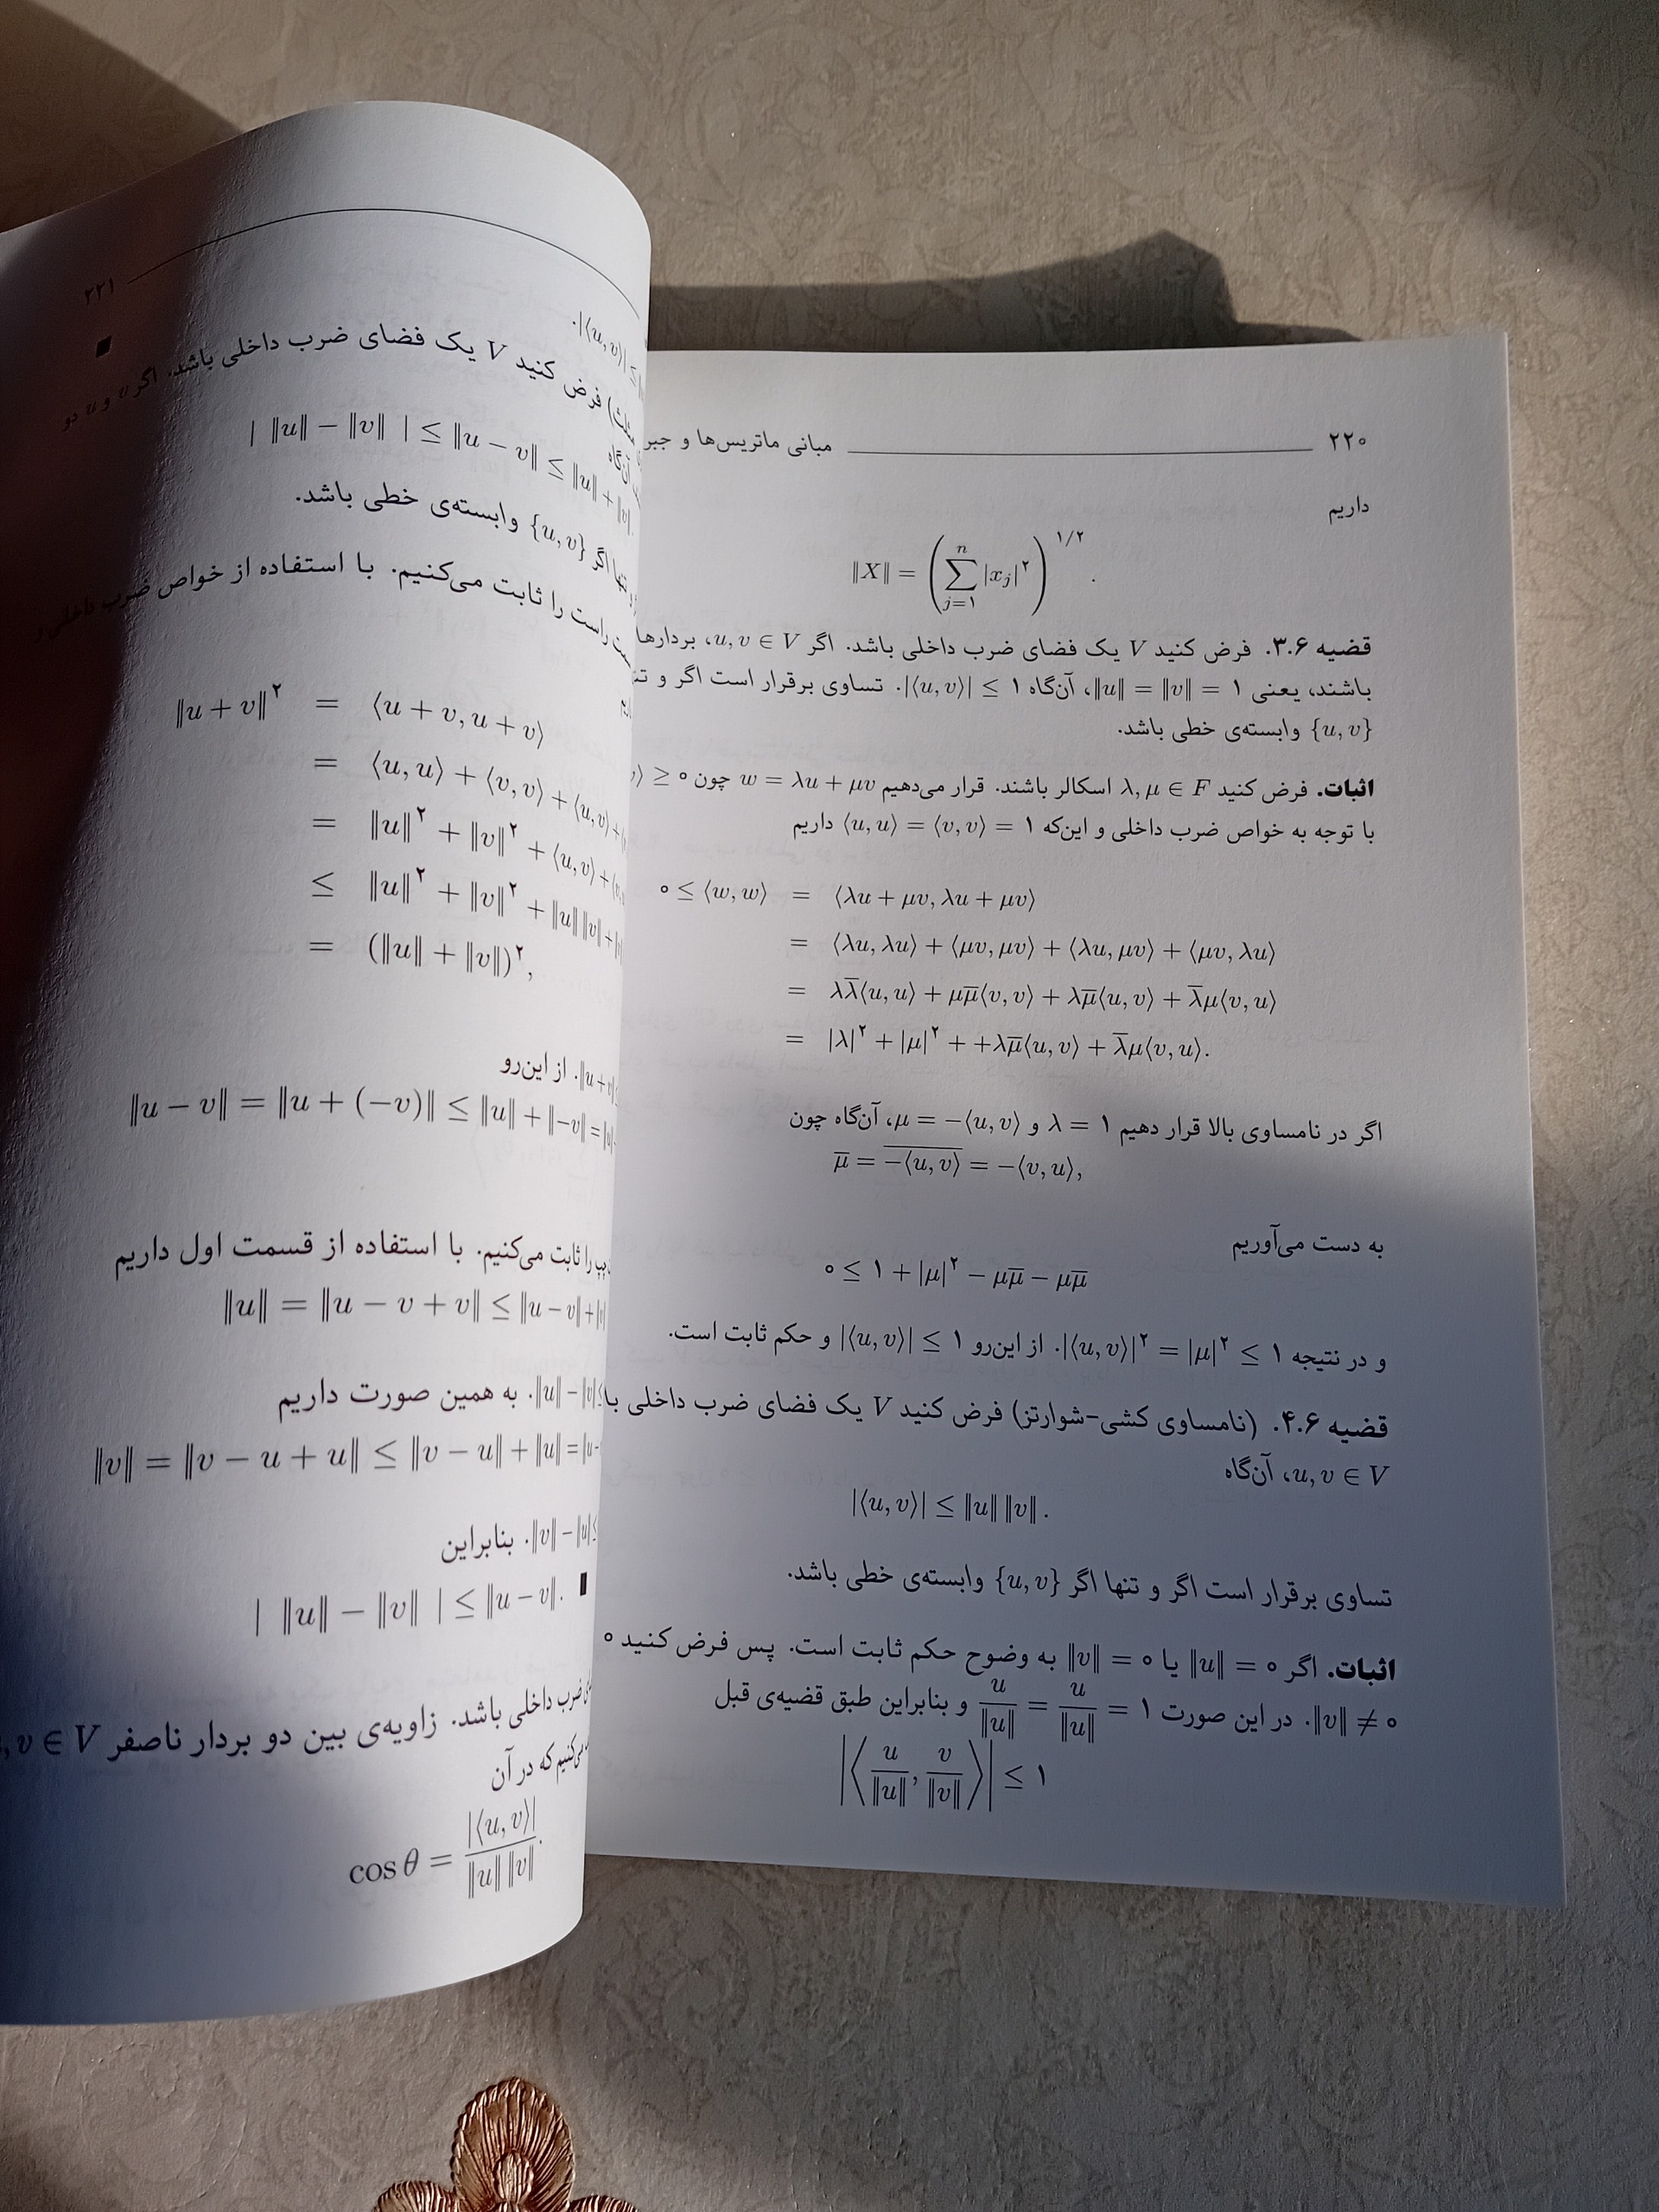 ۲۲۰ مبانی ماتریس‌ها و جبر
داریم
‖X‖ = (∑_{j=۱}^{n} |x_j|^۲)^{۱/۲}.
قضیه ۳.۶. فرض کنید V یک فضای ضرب داخلی باشد. اگر u, v ∈ V، بردارها
باشند، یعنی ‖u‖ = ‖v‖ = ۱، آن‌گاه |⟨u, v⟩| ≤ ۱. تساوی برقرار است اگر و
{u, v} وابسته‌ی خطی باشد.
اثبات. فرض کنید λ, μ ∈ F اسکالر باشند. قرار می‌دهیم w = λu + μv چون
با توجه به خواص ضرب داخلی و این‌که ⟨u, u⟩ = ⟨v, v⟩ = ۱ داریم
۰ ≤ ⟨w, w⟩ = ⟨λu + μv, λu + μv⟩
= ⟨λu, λu⟩ + ⟨μv, μv⟩ + ⟨λu, μv⟩ + ⟨μv, λu⟩
= λλ̅⟨u, u⟩ + μμ̅⟨v, v⟩ + λμ̅⟨u, v⟩ + λ̅μ⟨v, u⟩
= |λ|^۲ + |μ|^۲ + +λμ̅⟨u, v⟩ + λ̅μ⟨v, u⟩.
اگر در نامساوی بالا قرار دهیم λ = ۱ و μ = −⟨u, v⟩، آن‌گاه چون
μ̅ = \overline{−⟨u, v⟩} = −⟨v, u⟩,
به دست می‌آوریم
۰ ≤ ۱ + |μ|^۲ − μμ̅ − μμ̅
و در نتیجه |⟨u, v⟩|^۲ = |μ|^۲ ≤ ۱. از این‌رو |⟨u, v⟩| ≤ ۱ و حکم ثابت است.
قضیه ۴.۶. (نامساوی کشی-شوارتز) فرض کنید V یک فضای ضرب داخلی
u, v ∈ V، آن‌گاه
|⟨u, v⟩| ≤ ‖u‖ ‖v‖.
تساوی برقرار است اگر و تنها اگر {u, v} وابسته‌ی خطی باشد.
اثبات. اگر ‖u‖ = ۰ یا ‖v‖ = ۰ به وضوح حکم ثابت است. پس فرض کنید ۰
‖v‖ ≠ ۰. در این صورت u/‖u‖ = u/‖u‖ = ۱ و بنابراین طبق قضیه‌ی قبل
|⟨u/‖u‖, v/‖v‖⟩| ≤ ۱
۲۲۱
|⟨u, v⟩| ≤
■
فرض کنید V یک فضای ضرب داخلی باشد. اگر u و v دو
آن‌گاه
| ‖u‖ − ‖v‖ | ≤ ‖u − v‖ ≤ ‖u‖ + ‖v‖
تنها اگر {u, v} وابسته‌ی خطی باشد.
راست را ثابت می‌کنیم. با استفاده از خواص ضرب داخلی
‖u + v‖^۲ = ⟨u + v, u + v⟩
= ⟨u, u⟩ + ⟨v, v⟩ + ⟨u, v⟩ +
= ‖u‖^۲ + ‖v‖^۲ + ⟨u, v⟩ +
≤ ‖u‖^۲ + ‖v‖^۲ + ‖u‖ ‖v‖ +
= (‖u‖ + ‖v‖)^۲,
از این‌رو
‖u − v‖ = ‖u + (−v)‖ ≤ ‖u‖ + ‖−v‖ =
را ثابت می‌کنیم. با استفاده از قسمت اول داریم
‖u‖ = ‖u − v + v‖ ≤ ‖u − v‖ +
‖u‖ − ‖v‖. به همین صورت داریم
‖v‖ = ‖v − u + u‖ ≤ ‖v − u‖ + ‖u‖ =
‖v‖ − ‖u‖. بنابراین
| ‖u‖ − ‖v‖ | ≤ ‖u − v‖. ■
ضرب داخلی باشد. زاویه‌ی بین دو بردار ناصفر v ∈ V
می‌کنیم که در آن
cos θ = |⟨u, v⟩| / ‖u‖ ‖v‖.